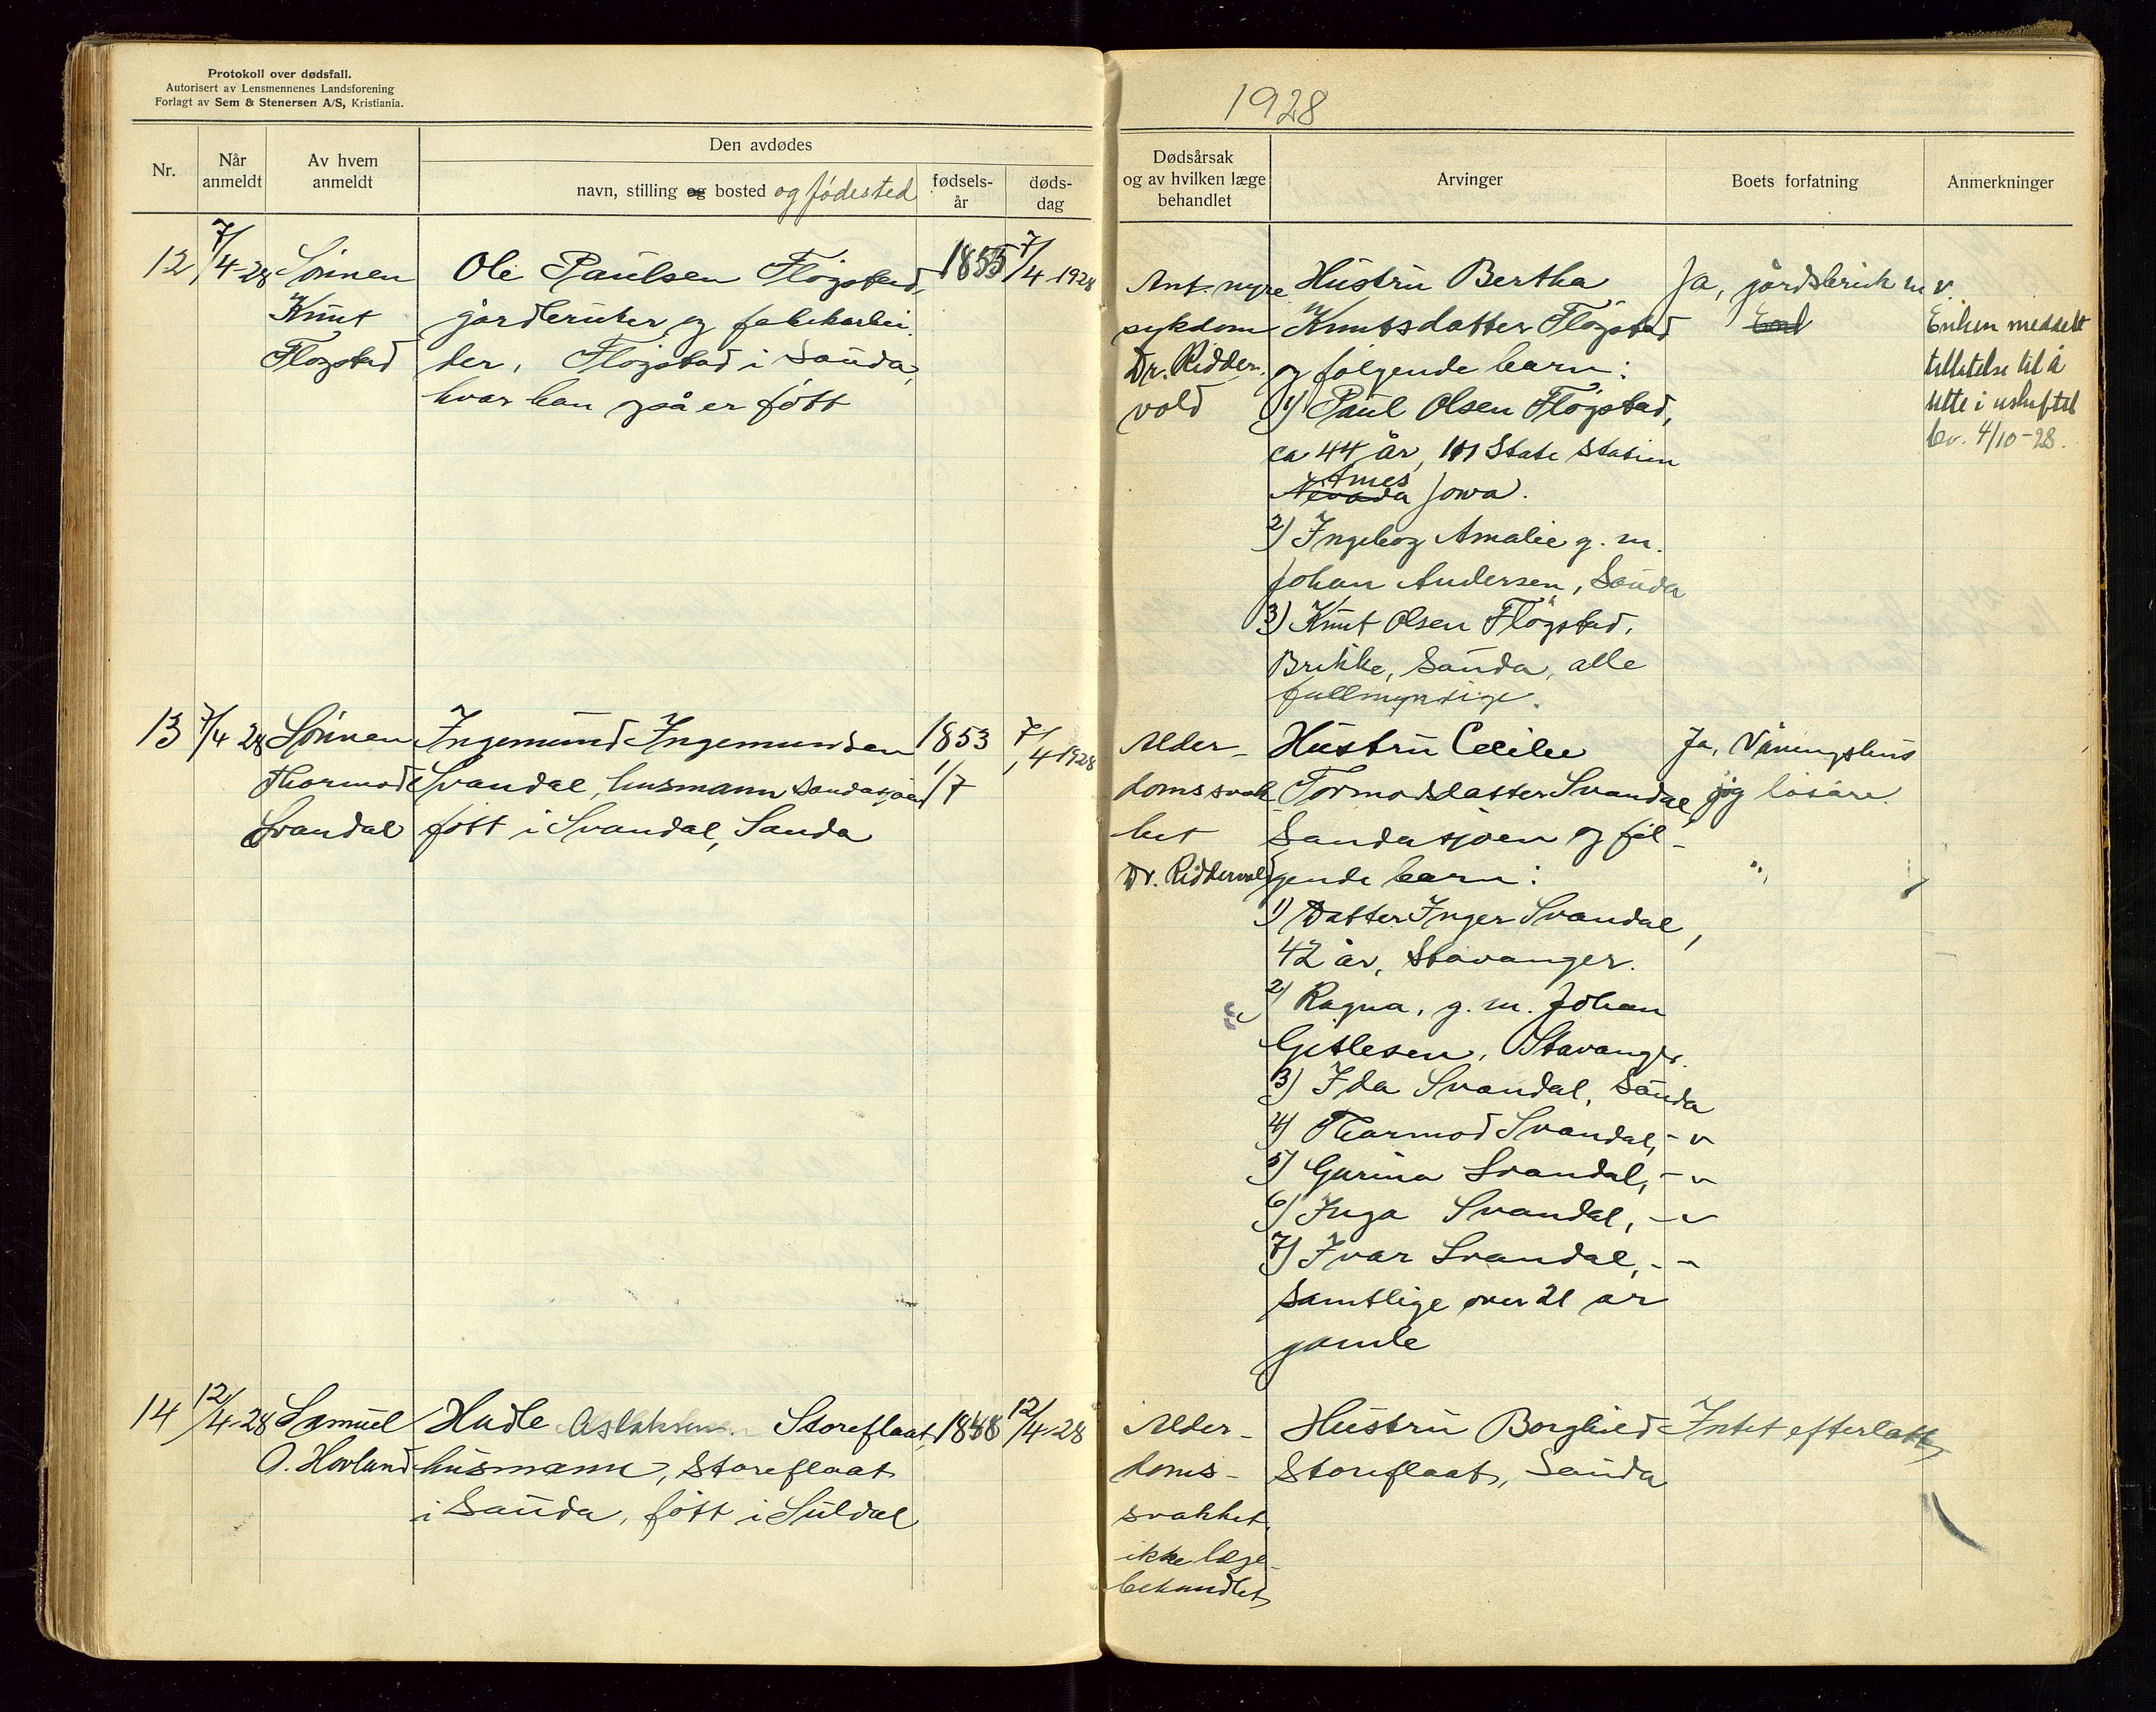 Protokoll over dødsfall.
Autorisert av Lensmennenes Landsforening
Forlagt av Sem & Stenersen A/S, Kristiania.
Nr.
Når anmeldt
Av hvem anmeldt
Den avdødes
navn, stilling og bosted og fødested
fødsels-år
døds-dag
12
7/4-28
Sönnen
Knut
Flogstad
Ole Paulsen Flögstad,
gårdbruker og fabrikarbei-
der, Flogstad i Sauda,
hvor han også er født
1855
7/4-1928
13
7/4 28
Sönnen
Thormod
Svandal
Ingemund Ingemundsen
Svandal, husmann Saudasjøen
født i Svandal, Sauda
1853
1/7
7/4 1928
14
12/4-28
Samuel
O. Hovland
Hadle Aslaksen Storeflaat,
husmann, Storeflaat
i Sauda, født i Suldal
1848
12/4-28
1928
Dødsårsak
og av hvilken læge
behandlet
Arvinger
Boets forfatning
Anmerkninger
Ant. nyre
sykdom
Dr. Ridder-
vold
Hustru Bertha
Knutsdatter Flögstad
og følgende barn:
1) Paul Olsen Flögstad,
ca 44 år, 101 State Station
Nevada Ames Jowa.
2) Ingeborg Amalie g. m.
Johan Andersen, Sauda
3) Knut Olsen Flögstad,
Brekke, Sauda, alle
fullmyndige.
Ja, gårdsbruk m v.
Enken meddelt
tillatelse til å
sitte i uskiftet
bo. 4/10-28.
Alder-
doms svak
het
Dr. Riddervold
Hustru Cecilie
Tormodsdatter Svandal,
Saudasjøen og føl-
gende barn:
1) Datter Inger Svandal,
42 år, Stavanger.
2) Ragna, g. m. Johan
Getlesen, Stavanger.
3) Ida Svandal, Sauda
4) Thormod Svandal, - v
5) Gurina Svandal, - v
6) Inga Svandal, - v
7) Ivar Svandal, - -
Samtlige over 21 år
gamle
Ja, Våningshus
og løsøre.
Alder-
doms-
svakhet,
ikke læge-
behandlet
Hustru Borghild
Storeflaat, Sauda
Intet efterlatt